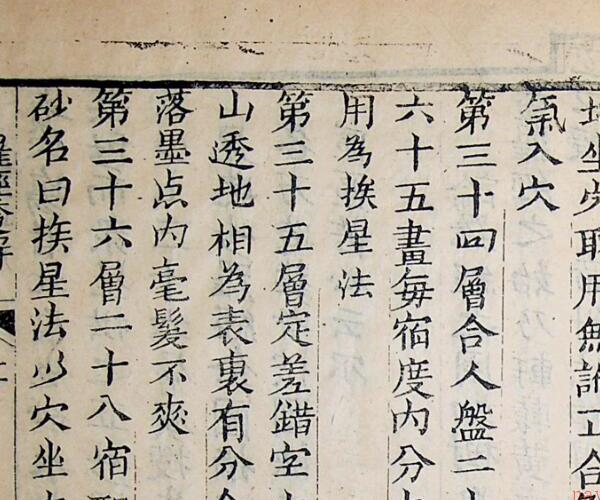 坐穴取用無訛正合
氣入穴
第三十四層合人盤二十
六十五畫每宿度內分
用為挨星法
第三十五層定差錯空
山透地相為表裏有分金
落墨点內毫髮不爽
第三十六層二十八宿
砂名曰挨星法以穴坐